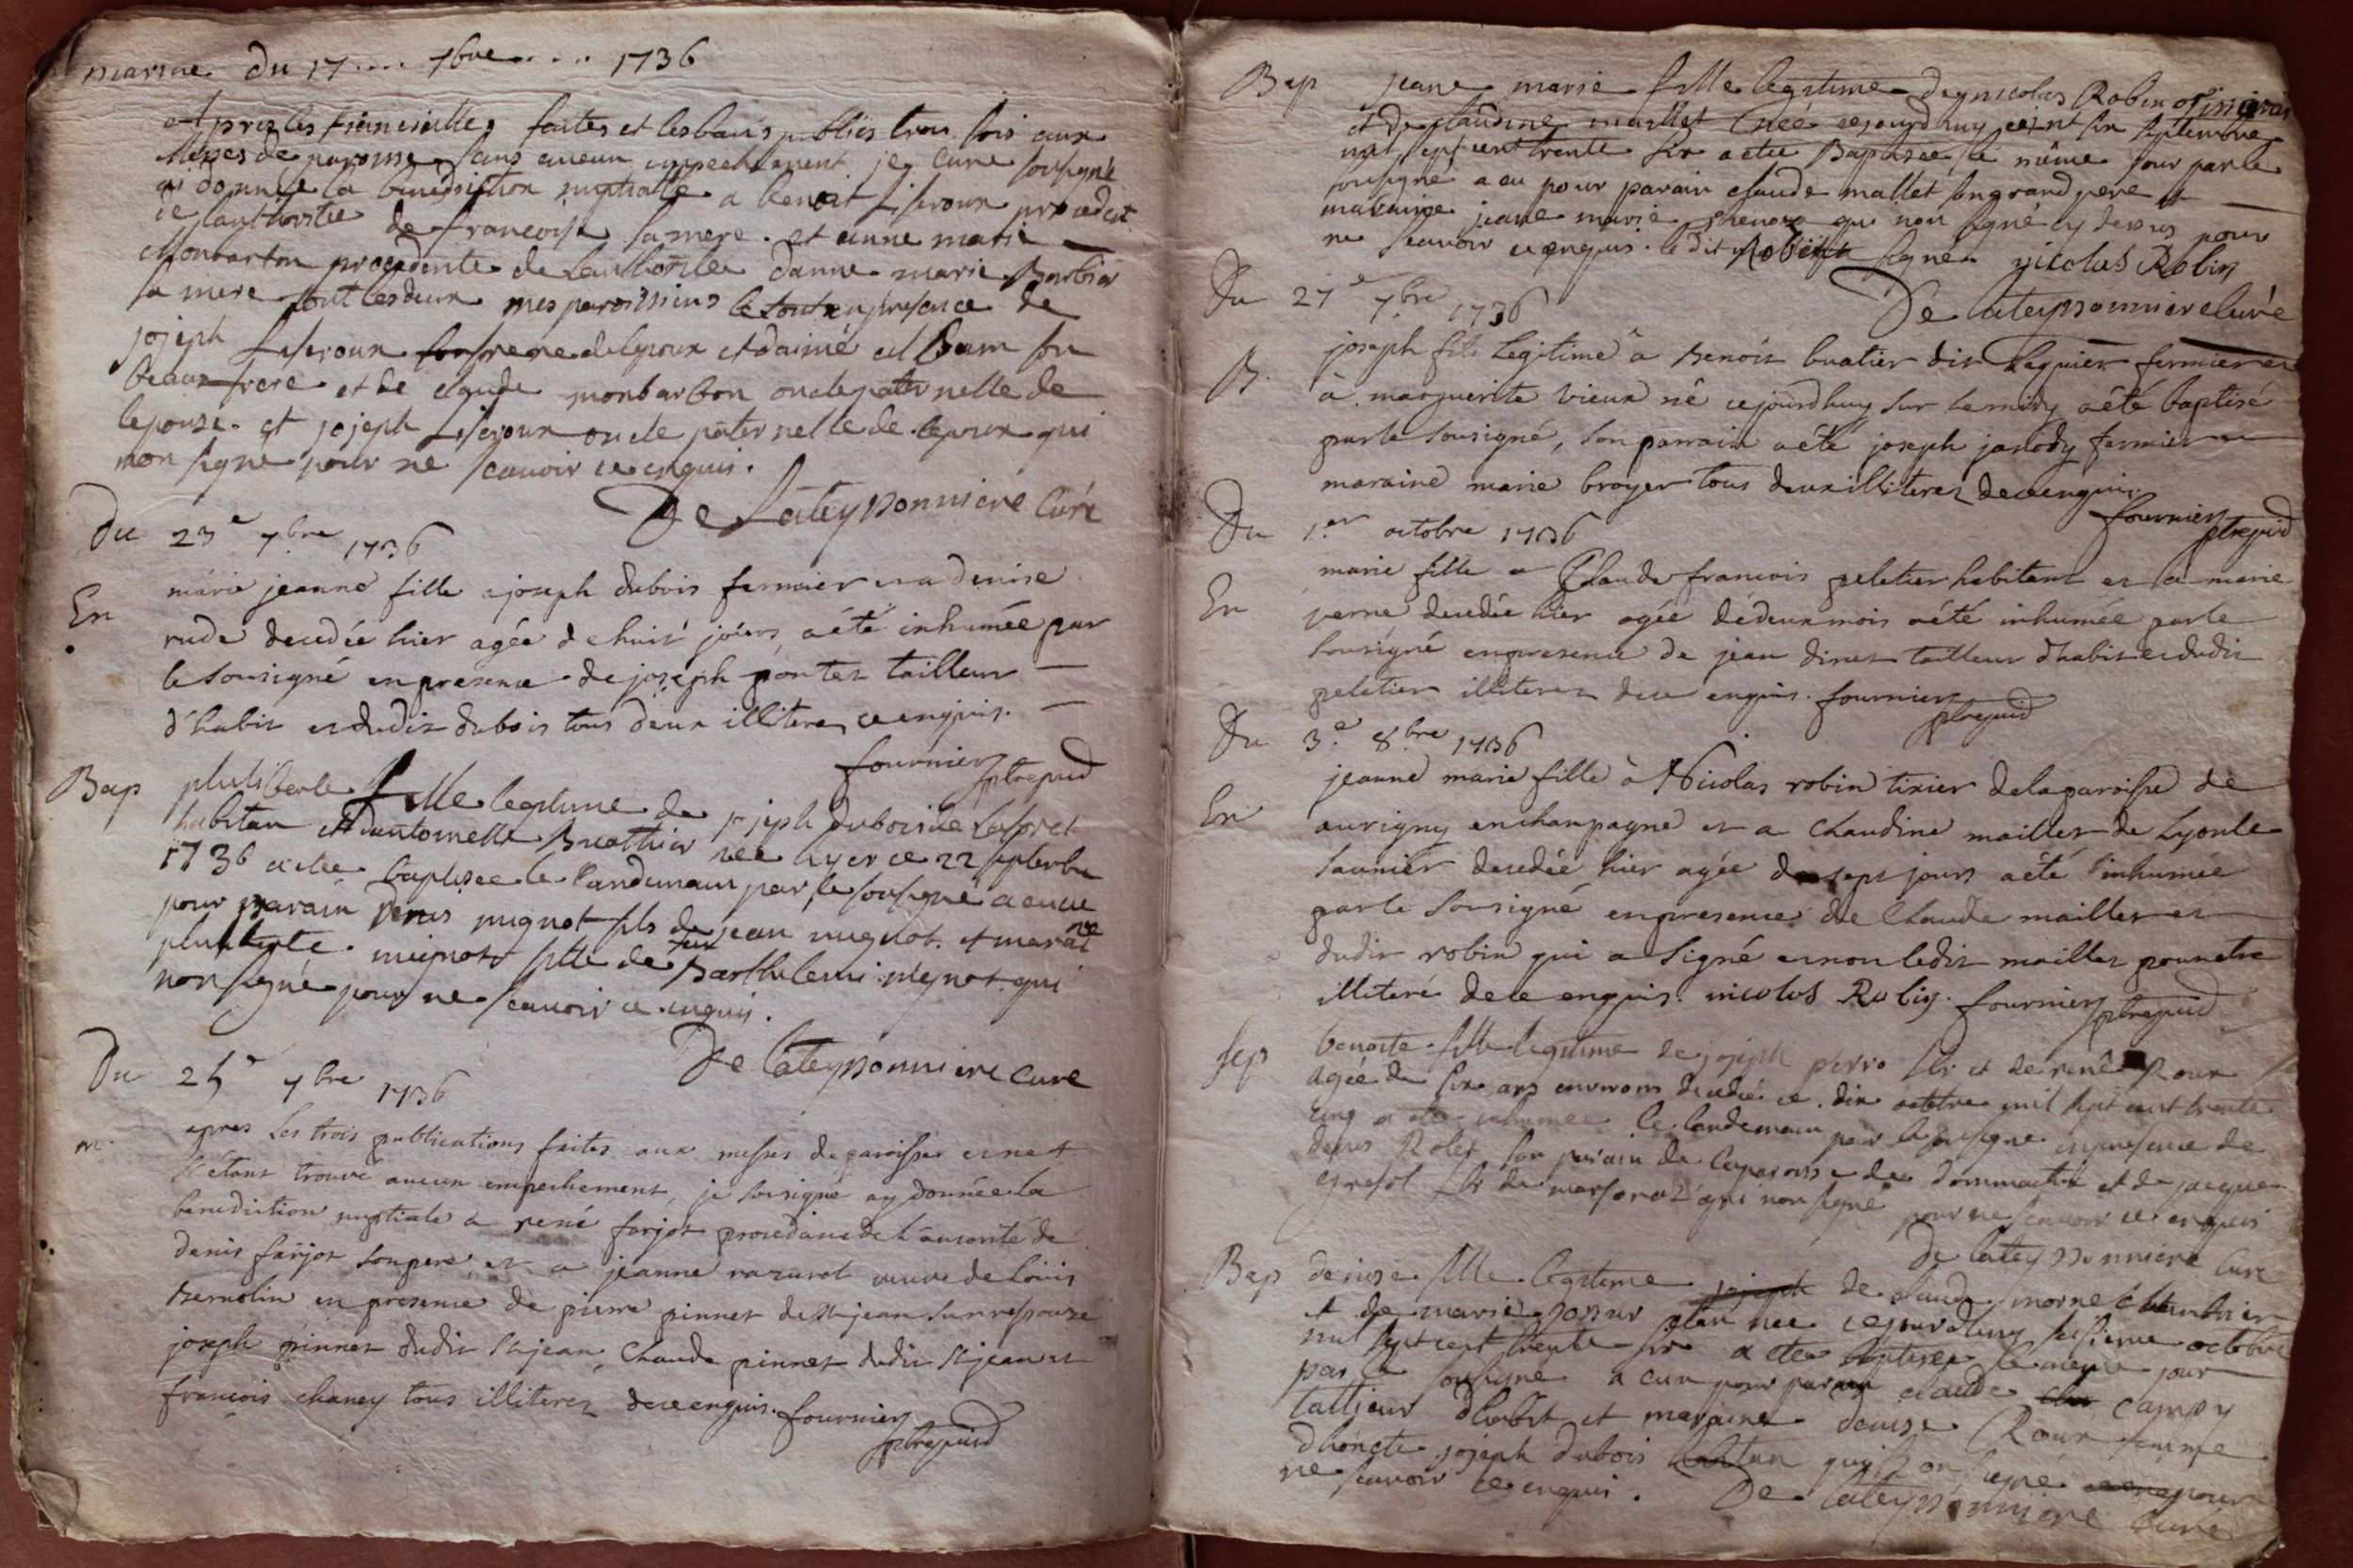 mariae du 17.... 7bre.... 1736
Apres les fiancialles faites et les bans publiés trois fois aux
Messes de paroisse sans aucun empechement je Curé soussigné
ai donnéé la benediction nuptialle a benoit procedant
de lauthoritée de francoise sa mere. et anne marie
Monbarbon procedente de lauthoritée danne marie Barbier
sa mere tout les deux mes paroissiens le tout en presence de
joseph frere de lepoux et daimé son
beaux frere et de claude monbarbon oncle paternelle de
lepouse. et joseph oncle paternelle de lepoux qui
non signé pour ne scauoir ce enquis.
De Lateyssonniere Curé
Du 23e 7bre 1736
En marie jeanne fille a joseph dubois fermier et a denise
rude decedée hier agée de huit jours a été inhumée par
le sousigné en presence de joseph pontet tailleur
d'habit et dudit dubois tous deux illiteres ce enquis.
fournier
Bap philiberte fille legitime de joseph dubois de laforet
habitan et dantoinette Breathier née hyer ce 22 septembre
1736 a etee baptisee le landemain par le sousigné a eu
pour parain Denis mignot fils de jean mignot. et maraine
philiberte mignot fille de feu Barthelemi mignot qui
non signé pour ne scauoir ce enquis.
De lateyssonniere Curé
Du 25e 7bre 1736
m. apres les trois publications faites aux messes de paroisse et ne
s'etant trouvé aucun empechement, je sousigné ay donnée la
benediction nuptiale a rené farjot procedant de l'autorité de
denis farjot son pere, et a jeanne veuve de louis
bernolin en presence de pierre pinnet de st jean sur respouze
joseph pinnet dudit st jean, Claude pinnet dudit st jean et
francois chaney tous illiterez de ce enquis. fournier
Bap jeane marie fille legitime de nicolas Robin
et de claudine maillet née cejourdhuy vignt six septembre
mil sept cent trente six a etee Baptisee le même jour par le
sousigné a eu pour parain claude mallet son grand pere et
maraine jeane marie qui non signé cy dessus pour
ne scauoir ce enquis. le dit Robin signé. nicolas Robin
De lateyssonniere Curé
Du 27e 7bre 1736
B. joseph fils legitime a benoit buatier dit fermier et
a marguerite vieux né cejourdhuy sur le midy a été baptisé
par le sousigné, son parrain a été joseph janody fermier
maraine marie broyer tous deux illiterez de ce enquis
fournier
Du 1.er octobre 1736
En marie fille a Claude francois peletier habitant et a marie
verne decedée hier agée de deux mois a été inhumée par le
sousigné en presence de jean dinet tailleur d'habit et dudit
peletier illiterez de ce enquis. fournier
Du 3.e 8bre 1736
En jeanne marie fille a Nicolas robin tixier de la paroisse de
aurigny en champagne et a Claudine maillet de Lyon le
saunier decedée hier agée de sept jours a été inhumée
par le sousigné en presence de Claude maillet et
dudit robin qui a signé et non ledit maillet pour etre
illiteré de ce enquis. nicolas Robin. fournier
Sep benoite fille legitime de joseph perro et de rené Roux
agée de six ans environs decedée ce dix octobre mil sept cent trente
cinq a etee inhumee le landemain par le sousigné en presence de
denis Rolet son parain de la paroisse de dommartin et de jacque
de marsonaz qui non signé pour ne scauoir ce enquis
De lateyssonniere Curé
Bap denise fille legitime joseph de claude morne
et de marie née cejourdhuy octobre
mil sept cent trente six a etee baptisee le meme jour
par le sousigné a eu pour parain claude campy
tallieur dhabit et maraine denise Roux femme
dhonete joseph dubois habitan qui non signé pour
ne scauoir ce enquis. De lateyssonniere Curé